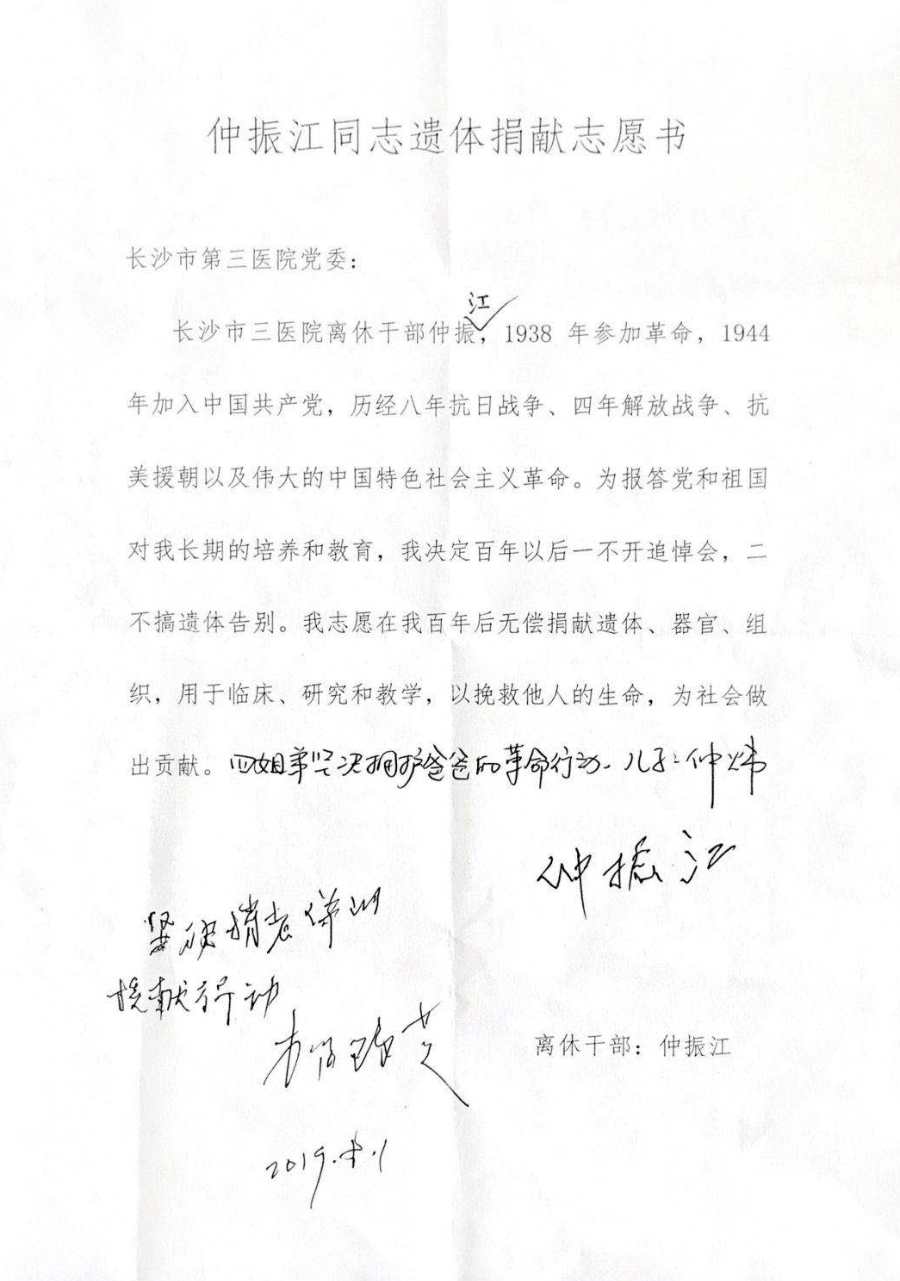 仲振江同志遗体捐献志愿书
长沙市第三医院党委：
江
长沙市三医院离休干部仲振，1938 年参加革命，1944
年加入中国共产党，历经八年抗日战争、四年解放战争、抗
美援朝以及伟大的中国特色社会主义革命。为报答党和祖国
对我长期的培养和教育，我决定百年以后一不开追悼会，二
不搞遗体告别。我志愿在我百年后无偿捐献遗体、器官、组
织，用于临床、研究和教学，以挽救他人的生命，为社会做
出贡献。四姐弟坚决拥护爸爸的革命行动. 儿子：仲炜
仲振江
坚决 老伴
捐献行动
离休干部：仲振江